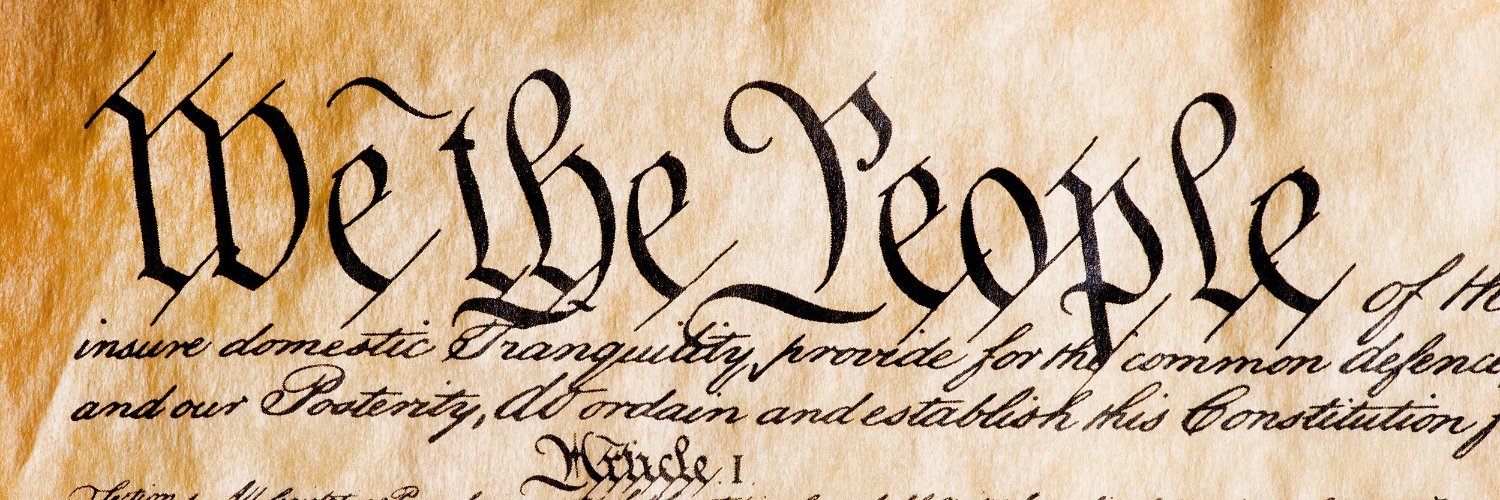 We the People of the
insure domestic Tranquility, provide for the common defence,
and our Posterity, do ordain and establish this Constitution f
Article. I.
Section